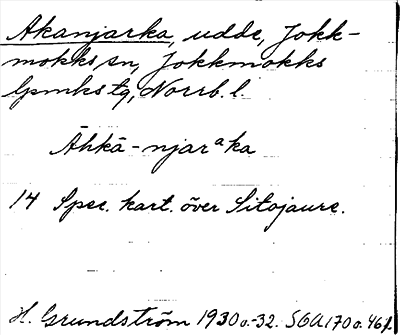 Akanjarka, udde, Jokk-
mokks sn, Jokkmokks
lpmks tg, Norrb. l.
Āhkā-njarᵃka
14 Spec. kart. över Sitojaure.
H. Grundström 1930 o.-32. SOA 170 o. 461.